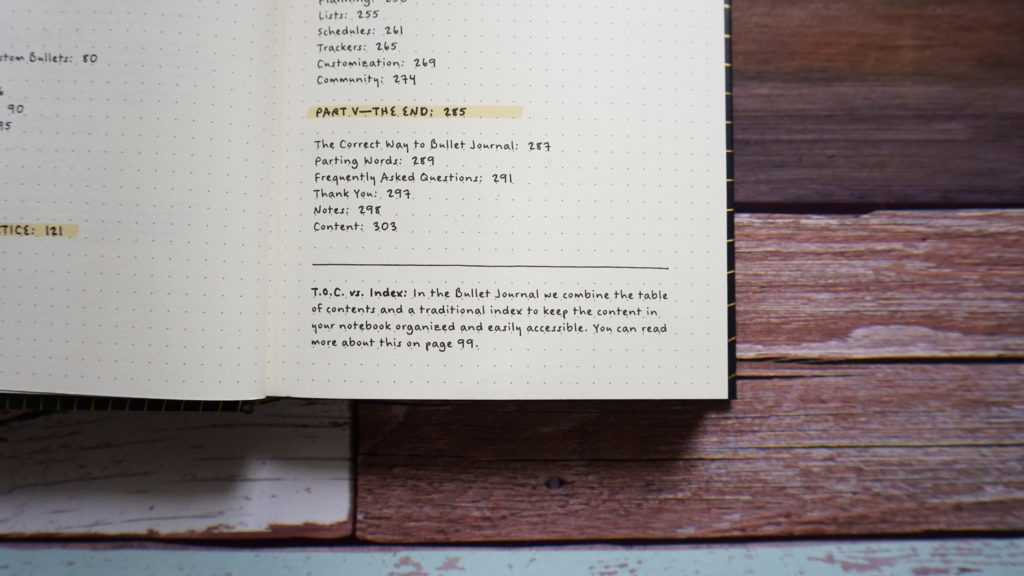 stom Bullets: 80
90
95
TICE: 121
Planning: 250
Lists: 255
Schedules: 261
Trackers: 265
Customization: 269
Community: 274
PART V—THE END: 285
The Correct Way to Bullet Journal: 287
Parting Words: 289
Frequently Asked Questions: 291
Thank You: 297
Notes: 298
Content: 303
T.O.C. vs. Index: In the Bullet Journal we combine the table
of contents and a traditional index to keep the content in
your notebook organized and easily accessible. You can read
more about this on page 99.